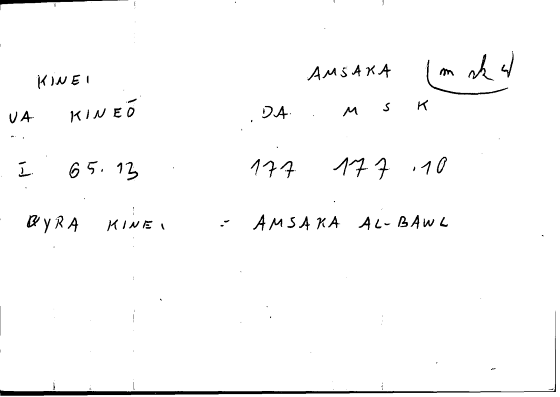 KINEI AMSAKA (msk4)
VA KINEŌ DA M S K
I 65.13 177 177.10
OYRA KINEI = AMSAKA AL-BAWL